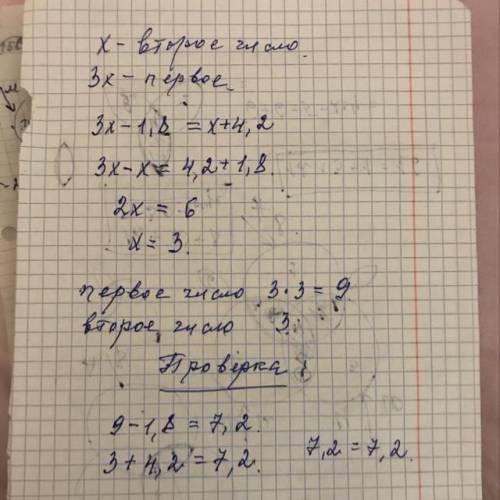 x - второе число.
3x - первое.
3x - 1,8 = x + 4,2
3x - x = 4,2 + 1,8.
2x = 6
x = 3.
первое число 3 · 3 = 9
второе число 3.
Проверка
9 - 1,8 = 7,2.
3 + 4,2 = 7,2. 7,2 = 7,2.